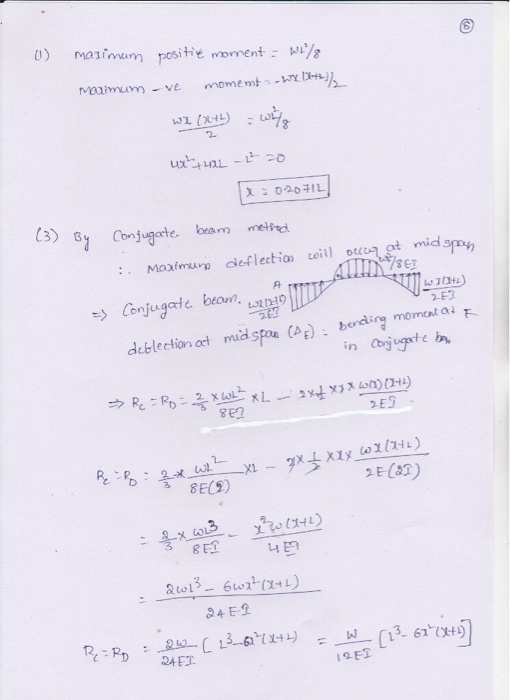 ⑧
(1) Maximum positive moment = WL²/8
Maximum -ve moment = -wx(x+L)/2
wx(x+L)/2 = wL²/8
4x²+4xL - L² = 0
x = 0.2071L
(3) By Conjugate beam method.
∴ Maximum deflection will occur at mid span
⇒ Conjugate beam. A wx(x+L)/2EI wL²/8EI wx(x+L)/2EI
deflection at midspan (ΔE) = bending moment at E
in conjugate bm
⇒ Rc = RD = 2/3 × wL²/8EI × L - 2×1/2 × x × w(x)(x+L)/2EI
Rc = RD = 2/3 × wL²/8E(2) × L - 2×1/2 × x × wx(x+L)/2E(2I)
= 2/3 × wL³/8EI - x²w(x+L)/4EI
= 2wL³ - 6wx²(x+L)/24EI
Rc = RD = 2w/24EI [L³-6x²(x+L) = w/12EI [L³-6x²(x+L)]